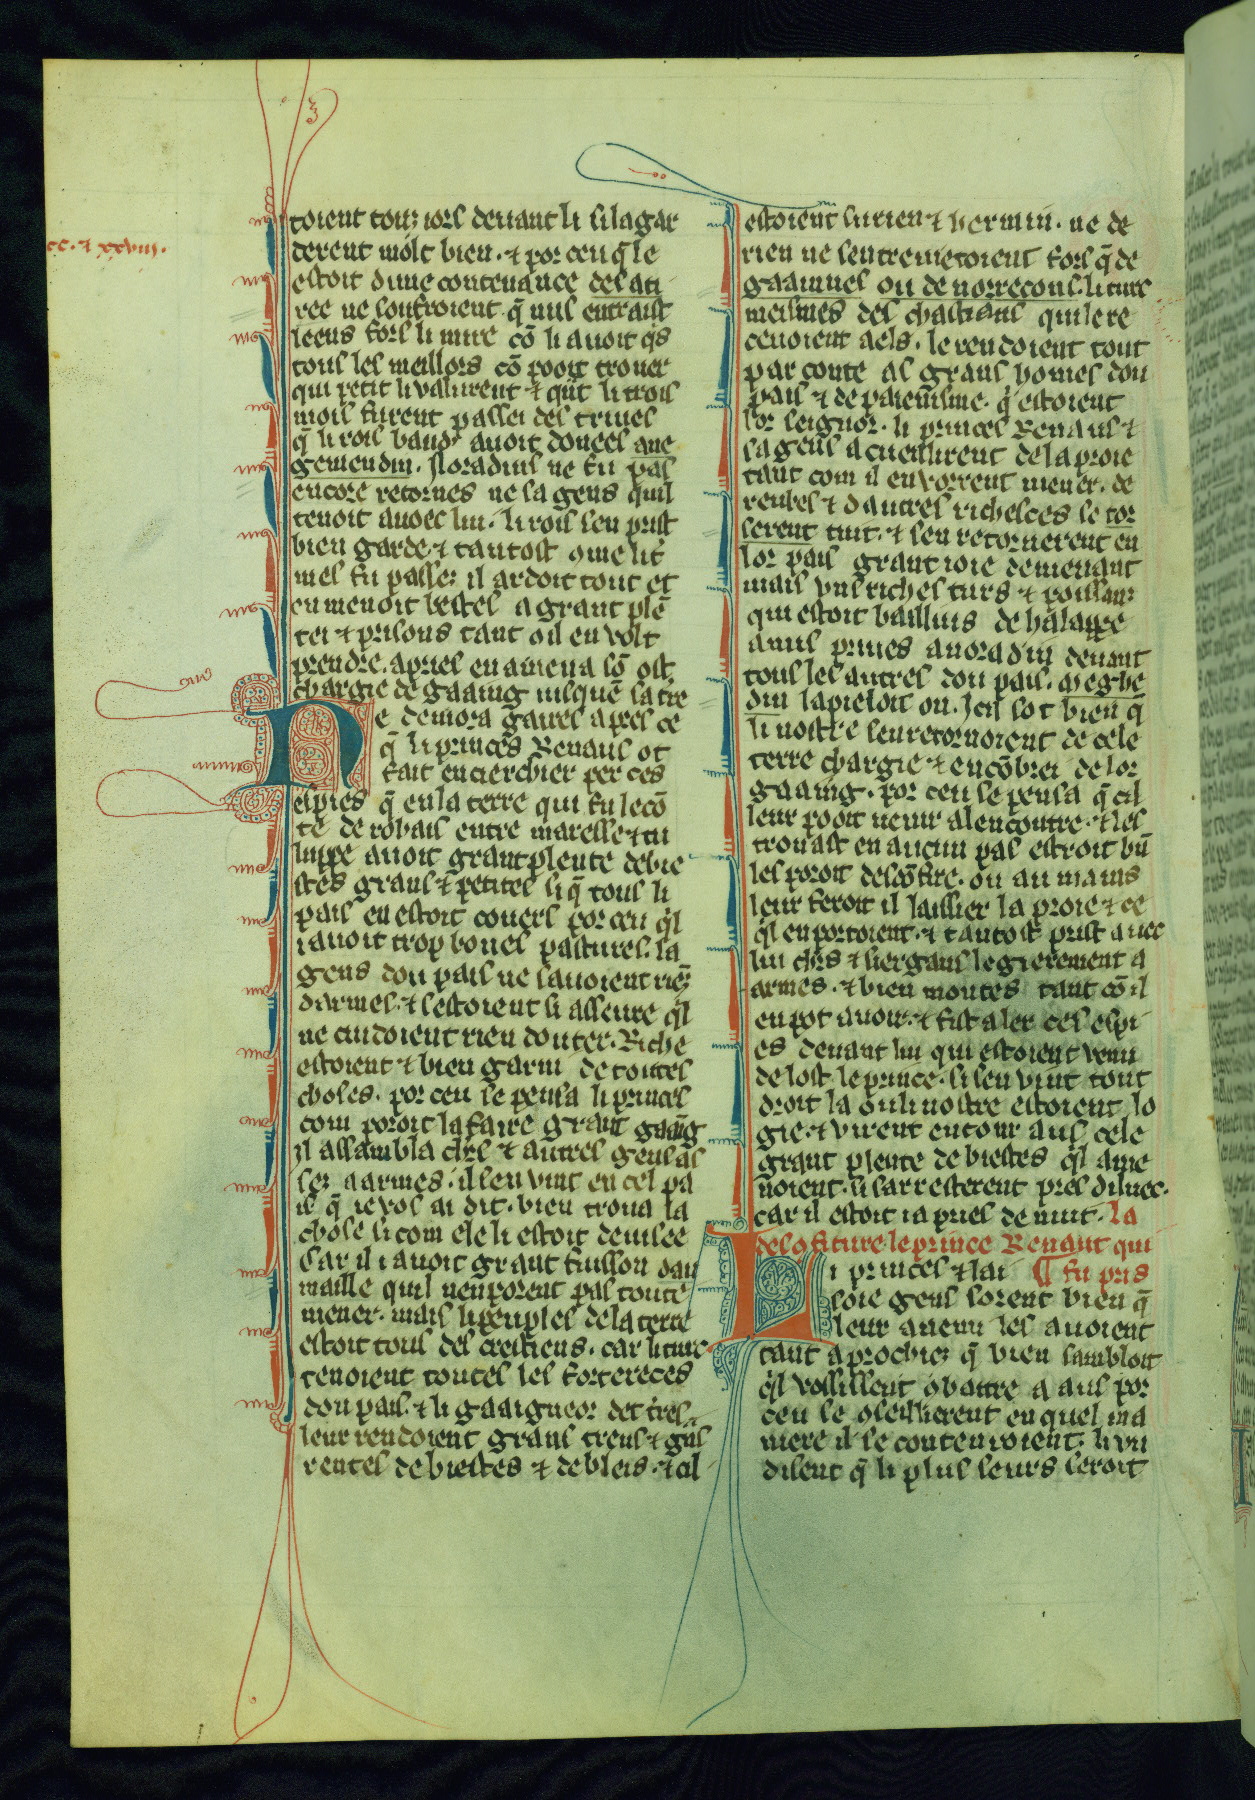 .cc. ⁊ xxviii.
toient touz iors deuant li si la gar
derent molt bien. ⁊ por ceu q̄ le
estoit dune contenance des ati
ree ne souffroient q̄ nus entrast
leens fors li mire cō li auoit q̄s
tous les meillors cō pooit trouer
qui petit li valurent ⁊ qn̄t li trois
mois furent passei des triues
q̄ li rois baud' auoit donees aue
gemendin. Noradins ne fu pas
encore retornes ne sa gens quil
tenoit auoec lui. li rois sen prist
bien garde. ⁊ tantost
mes fu passez il ardoit tout et
enmenoit bestes a grant plē
tei ⁊ prisons tant o il en volt
prendre. apries en amena sō ost
chargie de gaaing iusquē sa tre
Ne demora gaires apres ce
q̄ li princes Renaus ot
fait encierchier per ces
espies q̄ en la terre qui fu le cō
te de rohais entre maresse ⁊ tu
luppe auoit grant plente de bie
stes grans ⁊ petites si q̄ tous li
pais en estoit couers por ceu q̄l
i auoit trop bones pastures. la
gens dou pais ne sauoient riēz
darmes. ⁊ sestoient si asseure q̄l
ne cuidoient rien douter. Riche
estoient ⁊ bien garni de toutes
choses. por ceu se pensa li princes
com poroit la faire grant gaāig
il assambla chrs ⁊ autres gens as
sez a armes. il sen vint en cel pa
is q̄ ie vos ai dit. bien troua la
chose si com ele li estoit deuisee
Car il i auoit grant fuisson dau
maille quil nenporent pas toute
mener. mais li peuples de la terre
estoit tous des crestiens. car li turc
tenoient toutes les fortereces
dou pais. ⁊ li gaaigneor des tres
leur rendoient grans treus ⁊ gns
rentes de biestes ⁊ de bleis. ⁊ cil
estoient surien ⁊ hermin. ne de
rien ne sentremetoient fors q̄ de
gaainnes ou de norrecons. li turc
meismes des chastiaus qui le re
ceuoient aels. le rendoient tout
par conte as grans homes dou
pais ⁊ de paienisme. q̄ estoient
lor seignor. li princes Renaus ⁊
sa gens acueillirent de la proie
tant com il en vorrent mener. de
reubes ⁊ dautres richesces se tor
serent tuit. ⁊ sen retornerent en
lor pais grant ioie demenant
mais vns riches turs ⁊ poissanz
qui estoit baillius de halappe
amis priues anoradin deuant
tous les autres dou pais. Megbe
din lapieloit on. Icil sot bien q̄
li nostre sen retornoient de cele
terre chargie ⁊ encōbrei de lor
gaaing. por ceu se pensa q̄ cil
leur pooit uenir alencontre. ⁊ les
trouast en aucun pas estroit bn̄
les poroit descōfire. ou au mains
leur feroit il laissier la proie ⁊ ce
q̄l en portoient. ⁊ tantost prist auec
lui chrs ⁊ siergans legierement a
armes. ⁊ bien montes tant cō il
en pot auoir. ⁊ fist aler ces espi
es deuant lui qui estoient venu
de lost le prince. si sen vint tout
droit la ou li nostre estoient lo
gie. ⁊ virent entour aus cele
grant plente de biestes q̄l ame
noient. si sarresterent pres diluec.
car il estoit ia pries de nuit. la
descōfiture le prince Renaut qui
Li princes ⁊ lai ¶ fu pris
soie gens sorent bien q̄
leur anemi les auoient
tant aprochiez q̄ bien sambloit
q̄l vosissent cōbatre a aus por
ceu se cōseillierent en quel ma
niere il se contenroient. li vn
disent q̄ li plus seurs seroit